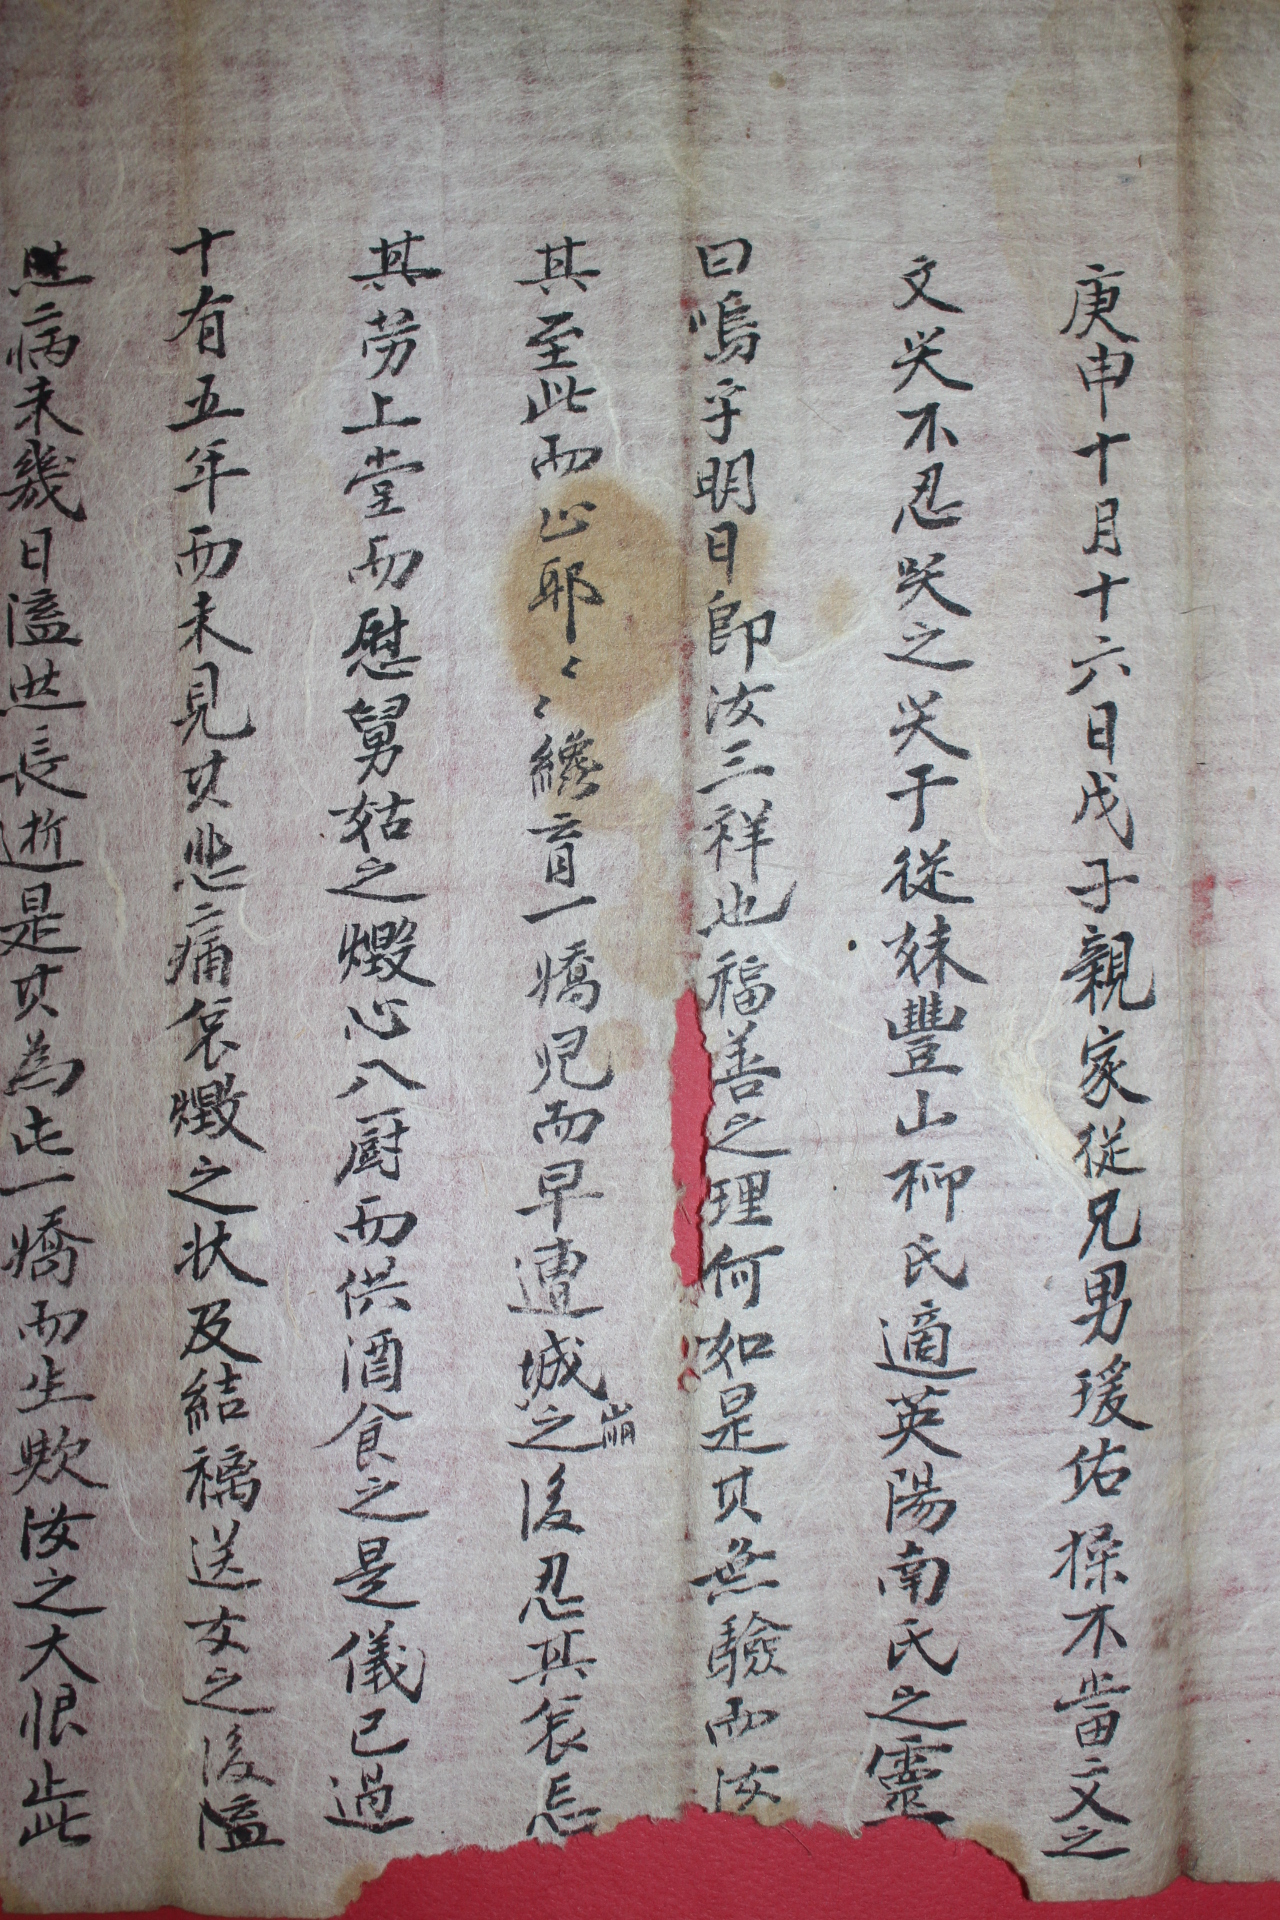 庚申十月十六日戊子親家從兄男瑗佑操不啻文之
文哭不忍哭之哭于從妹豐山柳氏適英陽南氏之靈
曰嗚乎明日即汝三祥也福善之理何如是其無驗而汝
其至此而止耶〻〻纔育一嬌児而早遭城崩之後忍其哀忘
其劳上堂而慰舅姑之燬心入厨而供酒食之是儀已過
十有五年而未見其悲痛哀燬之状及結褵送女之後溘
然病未幾日溘然長逝是其為此一嬌而生歟汝之大恨此